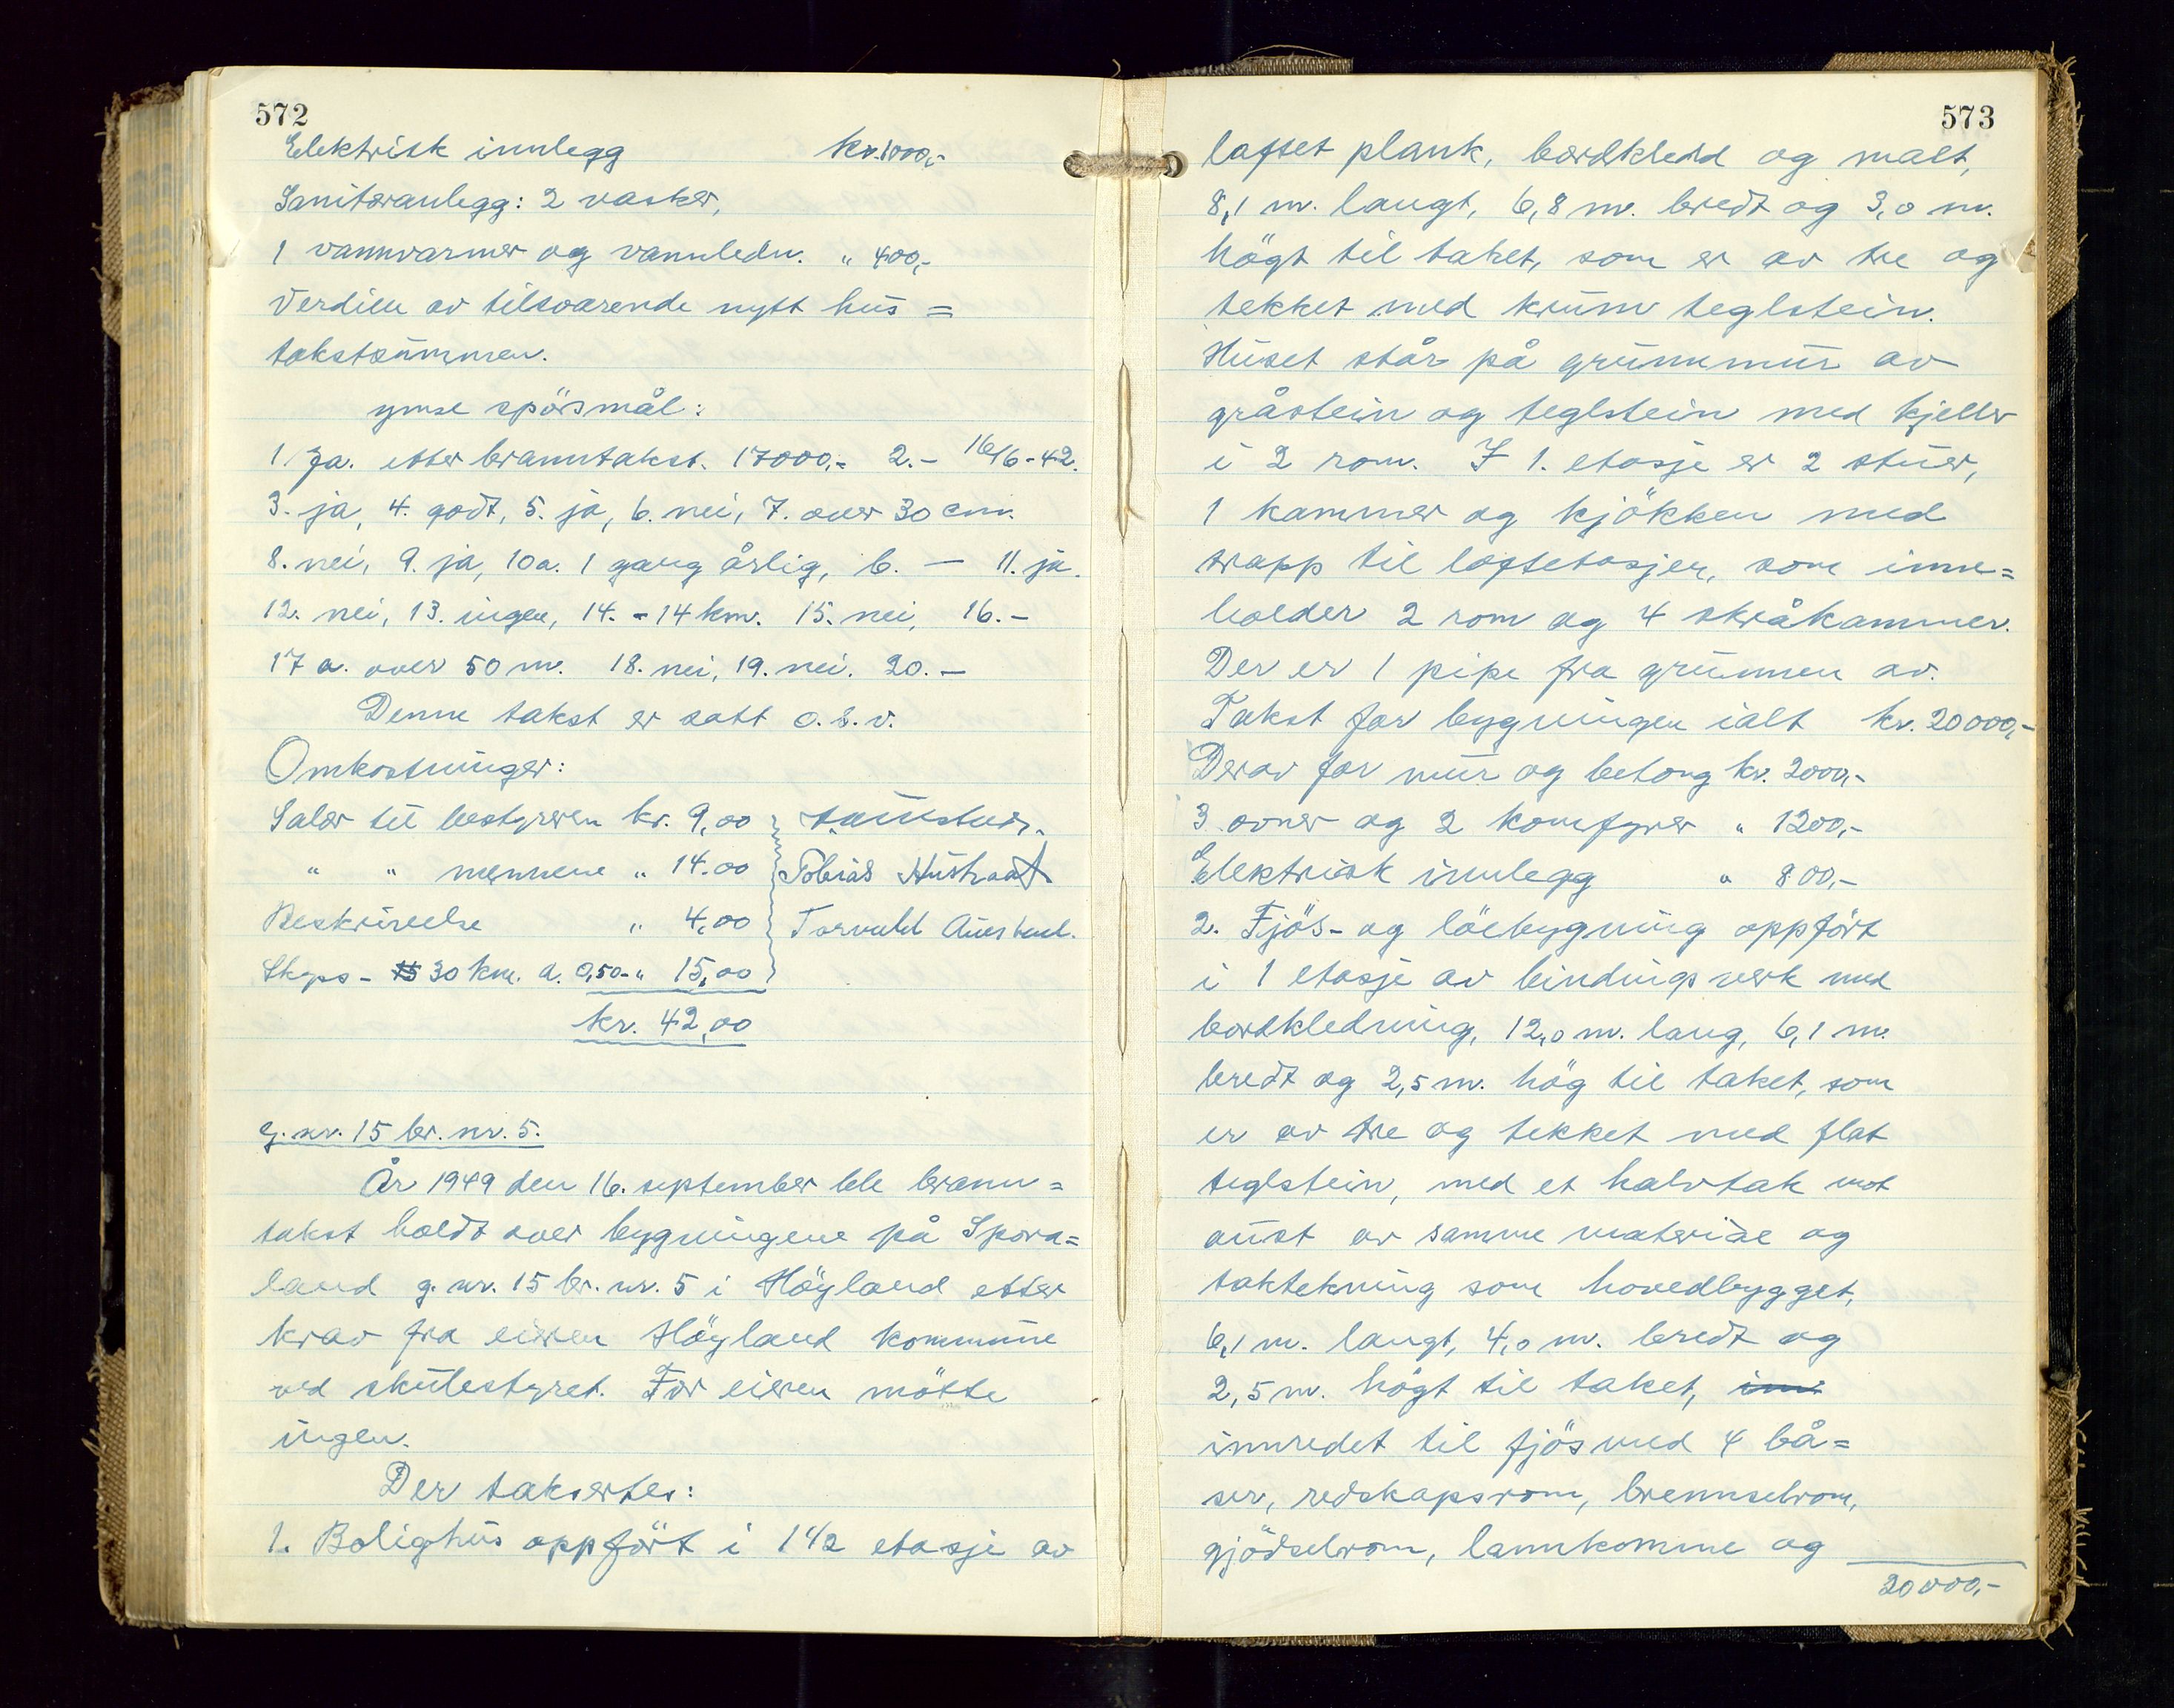 572
Elektrisk innlegg kr. 1000,-
Sanitæranlegg: 2 vasker,
1 vannvarmer og vannledn. " 400,-
Verdien av tilsvarende nytt hus =
takstsummen.
ymse spörsmål:
1. Ja. etter branntakst. 17000,- 2. - 16/6-42.
3. ja, 4. godt, 5. ja, 6. nei, 7. over 30 cm.
8. nei, 9. ja, 10a. 1 gang årlig, b. — 11. ja.
12. nei, 13. ingen, 14. - 14 km. 15. nei, 16. -
17 a. over 50 m. 18. nei, 19. nei. 20. -
Denne takst er satt o.s.v.
Omkostninger:
Salær til bestyreren kr. 9,00
" " mennene " 14.00 Tobias
Beskrivelse " 4,00 Torvald
Skyss - 30 km. a. 0,50 - " 15,00
kr. 42,00
g. nr. 15 br. nr. 5.
År 1949 den 16. september ble brann=
takst holdt over bygningene på Spora=
land g. nr. 15 br. nr. 5 i Höyland etter
krav fra eieren Höyland kommune
ved skulestyret. For eieren mötte
ingen.
Der taksertes:
1. Bolighus oppfört i 1 1/2 etasje av
573
laftet plank, bordkledd og malt,
8,1 m. langt, 6,8 m. bredt og 3,0 m.
högt til taket, som er av tre og
tekket med krum teglstein.
Huset står på grunnmur av
gråstein og teglstein med kjeller
i 2 rom. I 1. etasje er 2 stuer,
1 kammer og kjökken med
trapp til loftetasjen, som inne=
holder 2 rom og 4 skråkammer.
Der er 1 pipe fra grunnen av.
Takst for bygningen ialt kr. 20000,-
Derav for mur og betong kr. 2000,-
3 ovner og 2 komfyrer " 1200,-
Elektrisk innlegg " 800,-
2. Fjös- og löebygning oppfört
i 1 etasje av bindingsverk med
bordkledning, 12,0 m. lang, 6,1 m.
bredt og 2,5 m. hög til taket, som
er av tre og tekket med flat
teglstein, med et halvtak mot
aust av samme materiale og
taktekning som hovedbygget,
6,1 m. langt, 4,0 m. bredt og
2,5 m. högt til taket, inn
innredet til fjös med 4 bå=
ser, redskapsrom, brennselrom,
gjödselrom, lannkomme og
20000,-